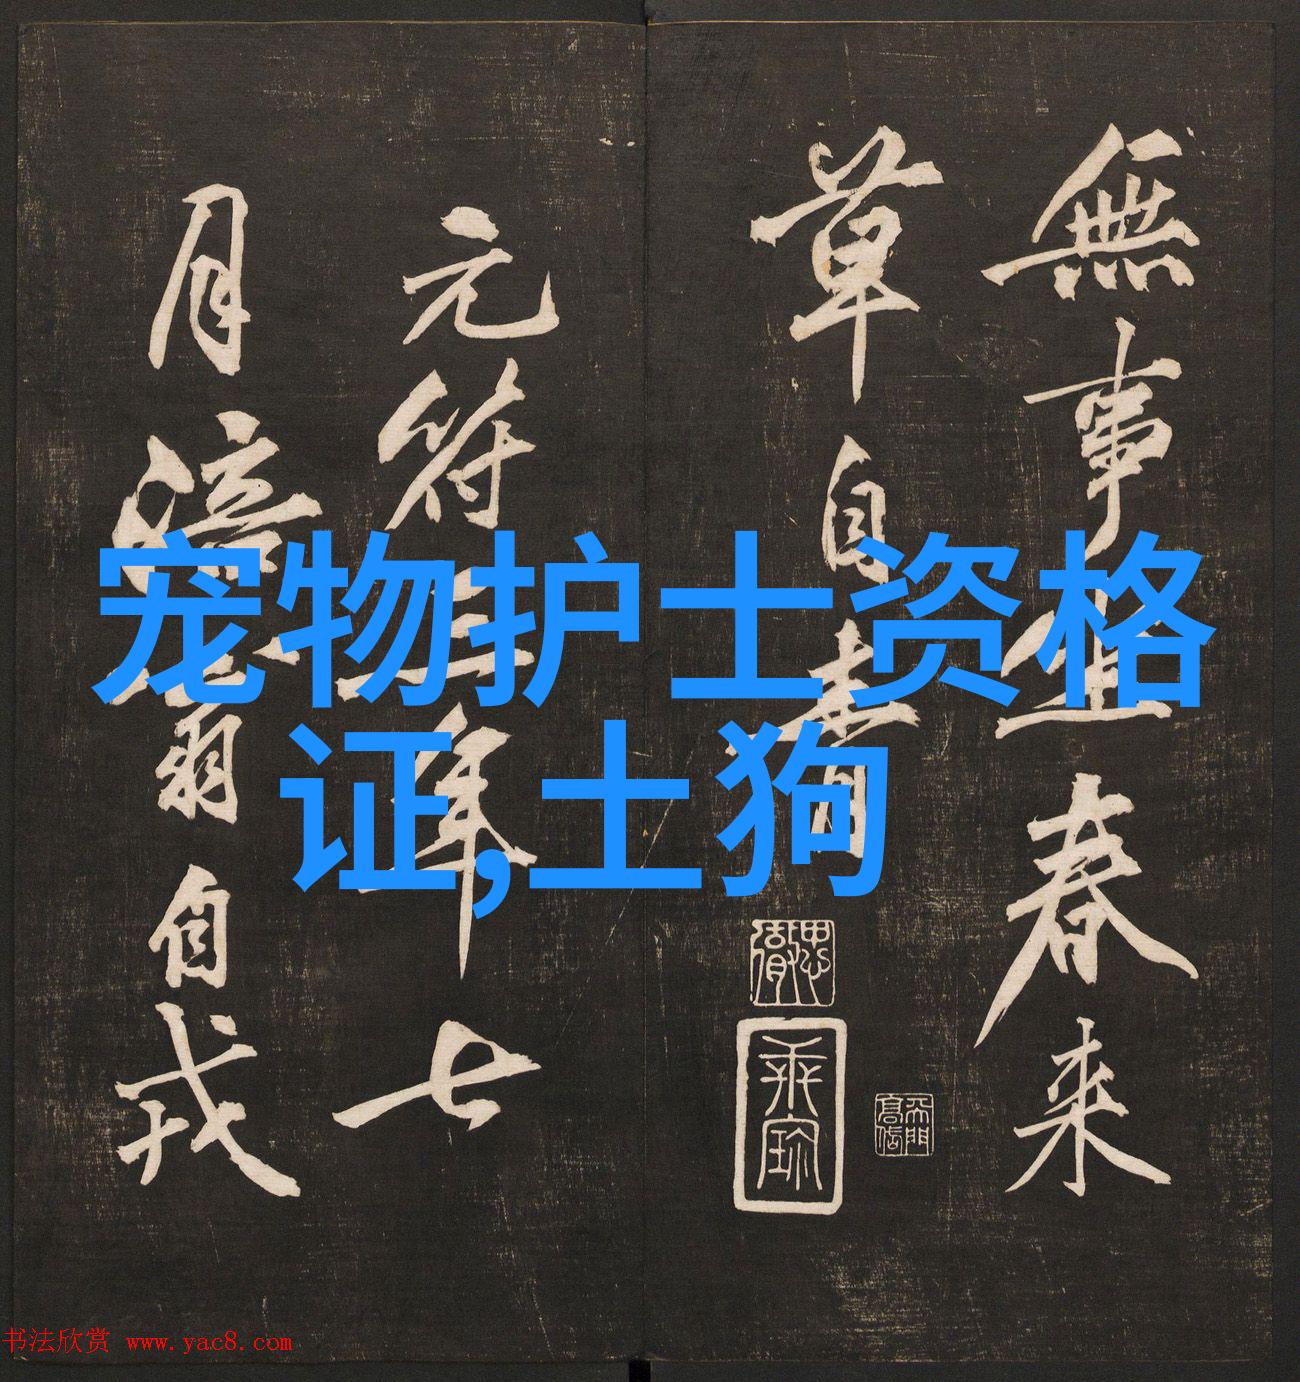 無事春来
草自青
元符三年七
月涪翁自戎
宠物护士资格
证,土狗
书法欣赏 www.yac8.com